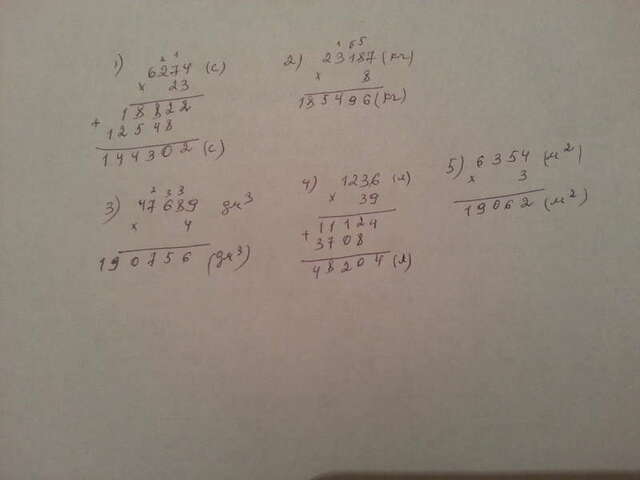 1) 6274 (с)
× 23
18822
+
12548
144302 (с)
2) 23187 (кг)
× 8
185496 (кг)
3) 47689 дм³
× 4
190756 (дм³)
4) 1236 (л)
× 39
11124
+
3708
48204 (л)
5) 6354 (м²)
× 3
19062 (м²)